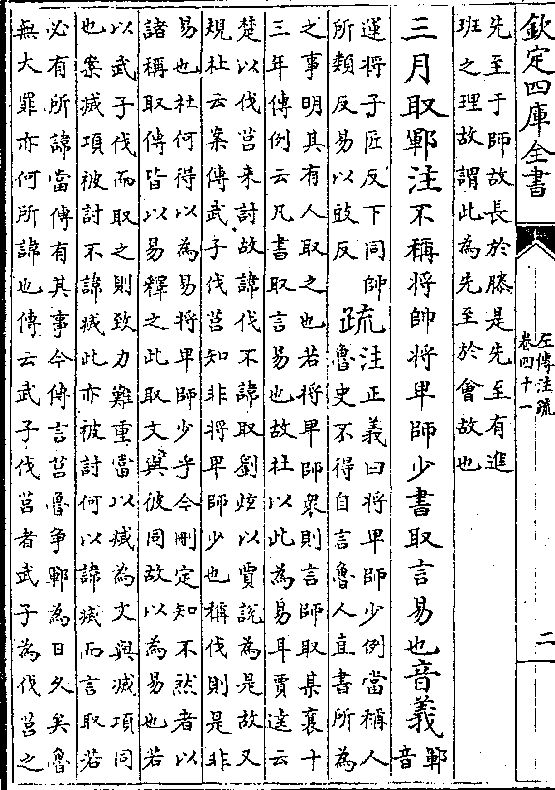 欽定四庫全書
左傳注疏
卷四十一
二
先至于師故長於滕是先至有進
班之理故謂此為先至於會故也
三月取鄆注不稱將帥將卑師少書取言易也音義鄆音
運將子匠反下同帥
所類反易以豉反
疏
注正義曰將卑師少例當稱人
魯史不得自言魯人直書所為
之事明其有人取之也若將卑師衆則言師取某襄十
三年傳例云凡書取言易也故杜以此為易耳賈逵云
楚以伐莒來討故諱伐不諱取劉炫以賈說為是故又
規杜云案傳武子伐莒知非將卑師少也稱伐則是非
易也杜何得以為易將卑師少乎今刪定知不然者以
諸稱取傳皆以易釋之此取文與彼同故以為易也若
以武子伐而取之則致力難重當以滅為文與滅項同
也案滅項被討不諱滅此亦被討何以諱滅而言取若
必有所諱當傳有其事今傳言莒魯爭鄆為日久矣魯
無大罪亦何所諱也傳云武子伐莒者武子為伐莒之